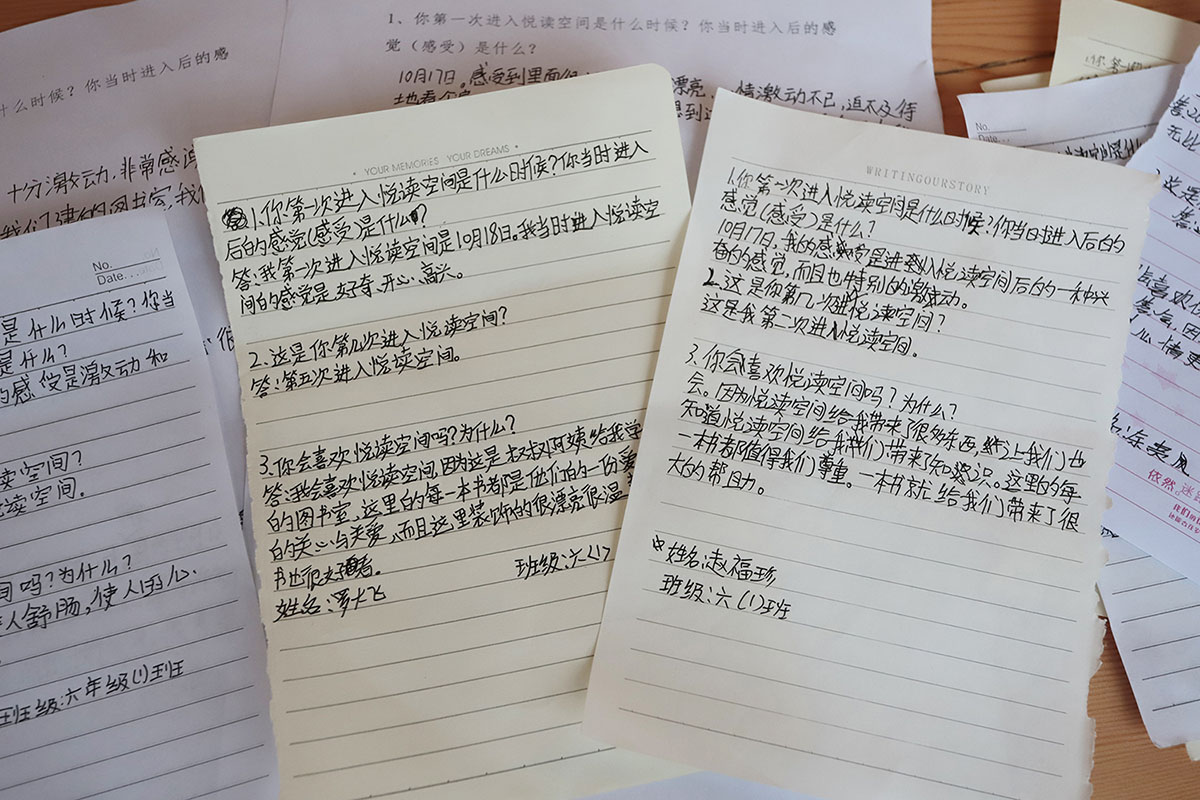 1、你第一次进入悦读空间是什么时候？你当时进入后的感
觉（感受）是什么？
10月17日。感受到里面很
漂亮
情激动不已,迫不及待
什么时候？你当时进入后的感
十分激动,非常感谢
No.
Date.
是什么时候?你当
是什么?
的感受是激动和
读空间?
读空间。
间吗?为什么?
人舒肠,使人的心
班级:六年级(1)班
YOUR MEMORIES YOUR DREAMS
1.你第一次进入悦读空间是什么时候?你当时进入
后的感觉(感受)是什么?
答:我第一次进入悦读空间是10月18日。我当时进入悦读空
间的感觉是好奇、开心、高兴。
2.这是你第几次进入悦读空间?
答:第五次进入悦读空间。
3.你会喜欢悦读空间吗?为什么?
答:我会喜欢悦读空间,因为这是叔叔阿姨给我学
的图书室,这里的每一本书都是他们的一份爱
的关心与关爱,而且这里装饰的很漂亮很温
书也很好看。
班级:六<1>
姓名:罗大飞
WRITINGOURSTORY
1.你第一次进入悦读空间是什么时候?你当时进入后的
感觉(感受)是什么?
10月17日,我的感受是进入悦读空间后的一种兴
奋的感觉,而且也特别的激动。
2.这是你第几次进悦读空间?
这是我第二次进入悦读空间。
3.你会喜欢悦读空间吗?为什么?
会。因为悦读空间给我带来了很多东西,让我们也
知道悦读空间给我们带来了知识。这里的每
一本书都值得我们尊重。一本书就给我们带来了很
大的帮助。
姓名:赵福珍
班级:六(1)班
No.
Date.
喜欢
依然。迷